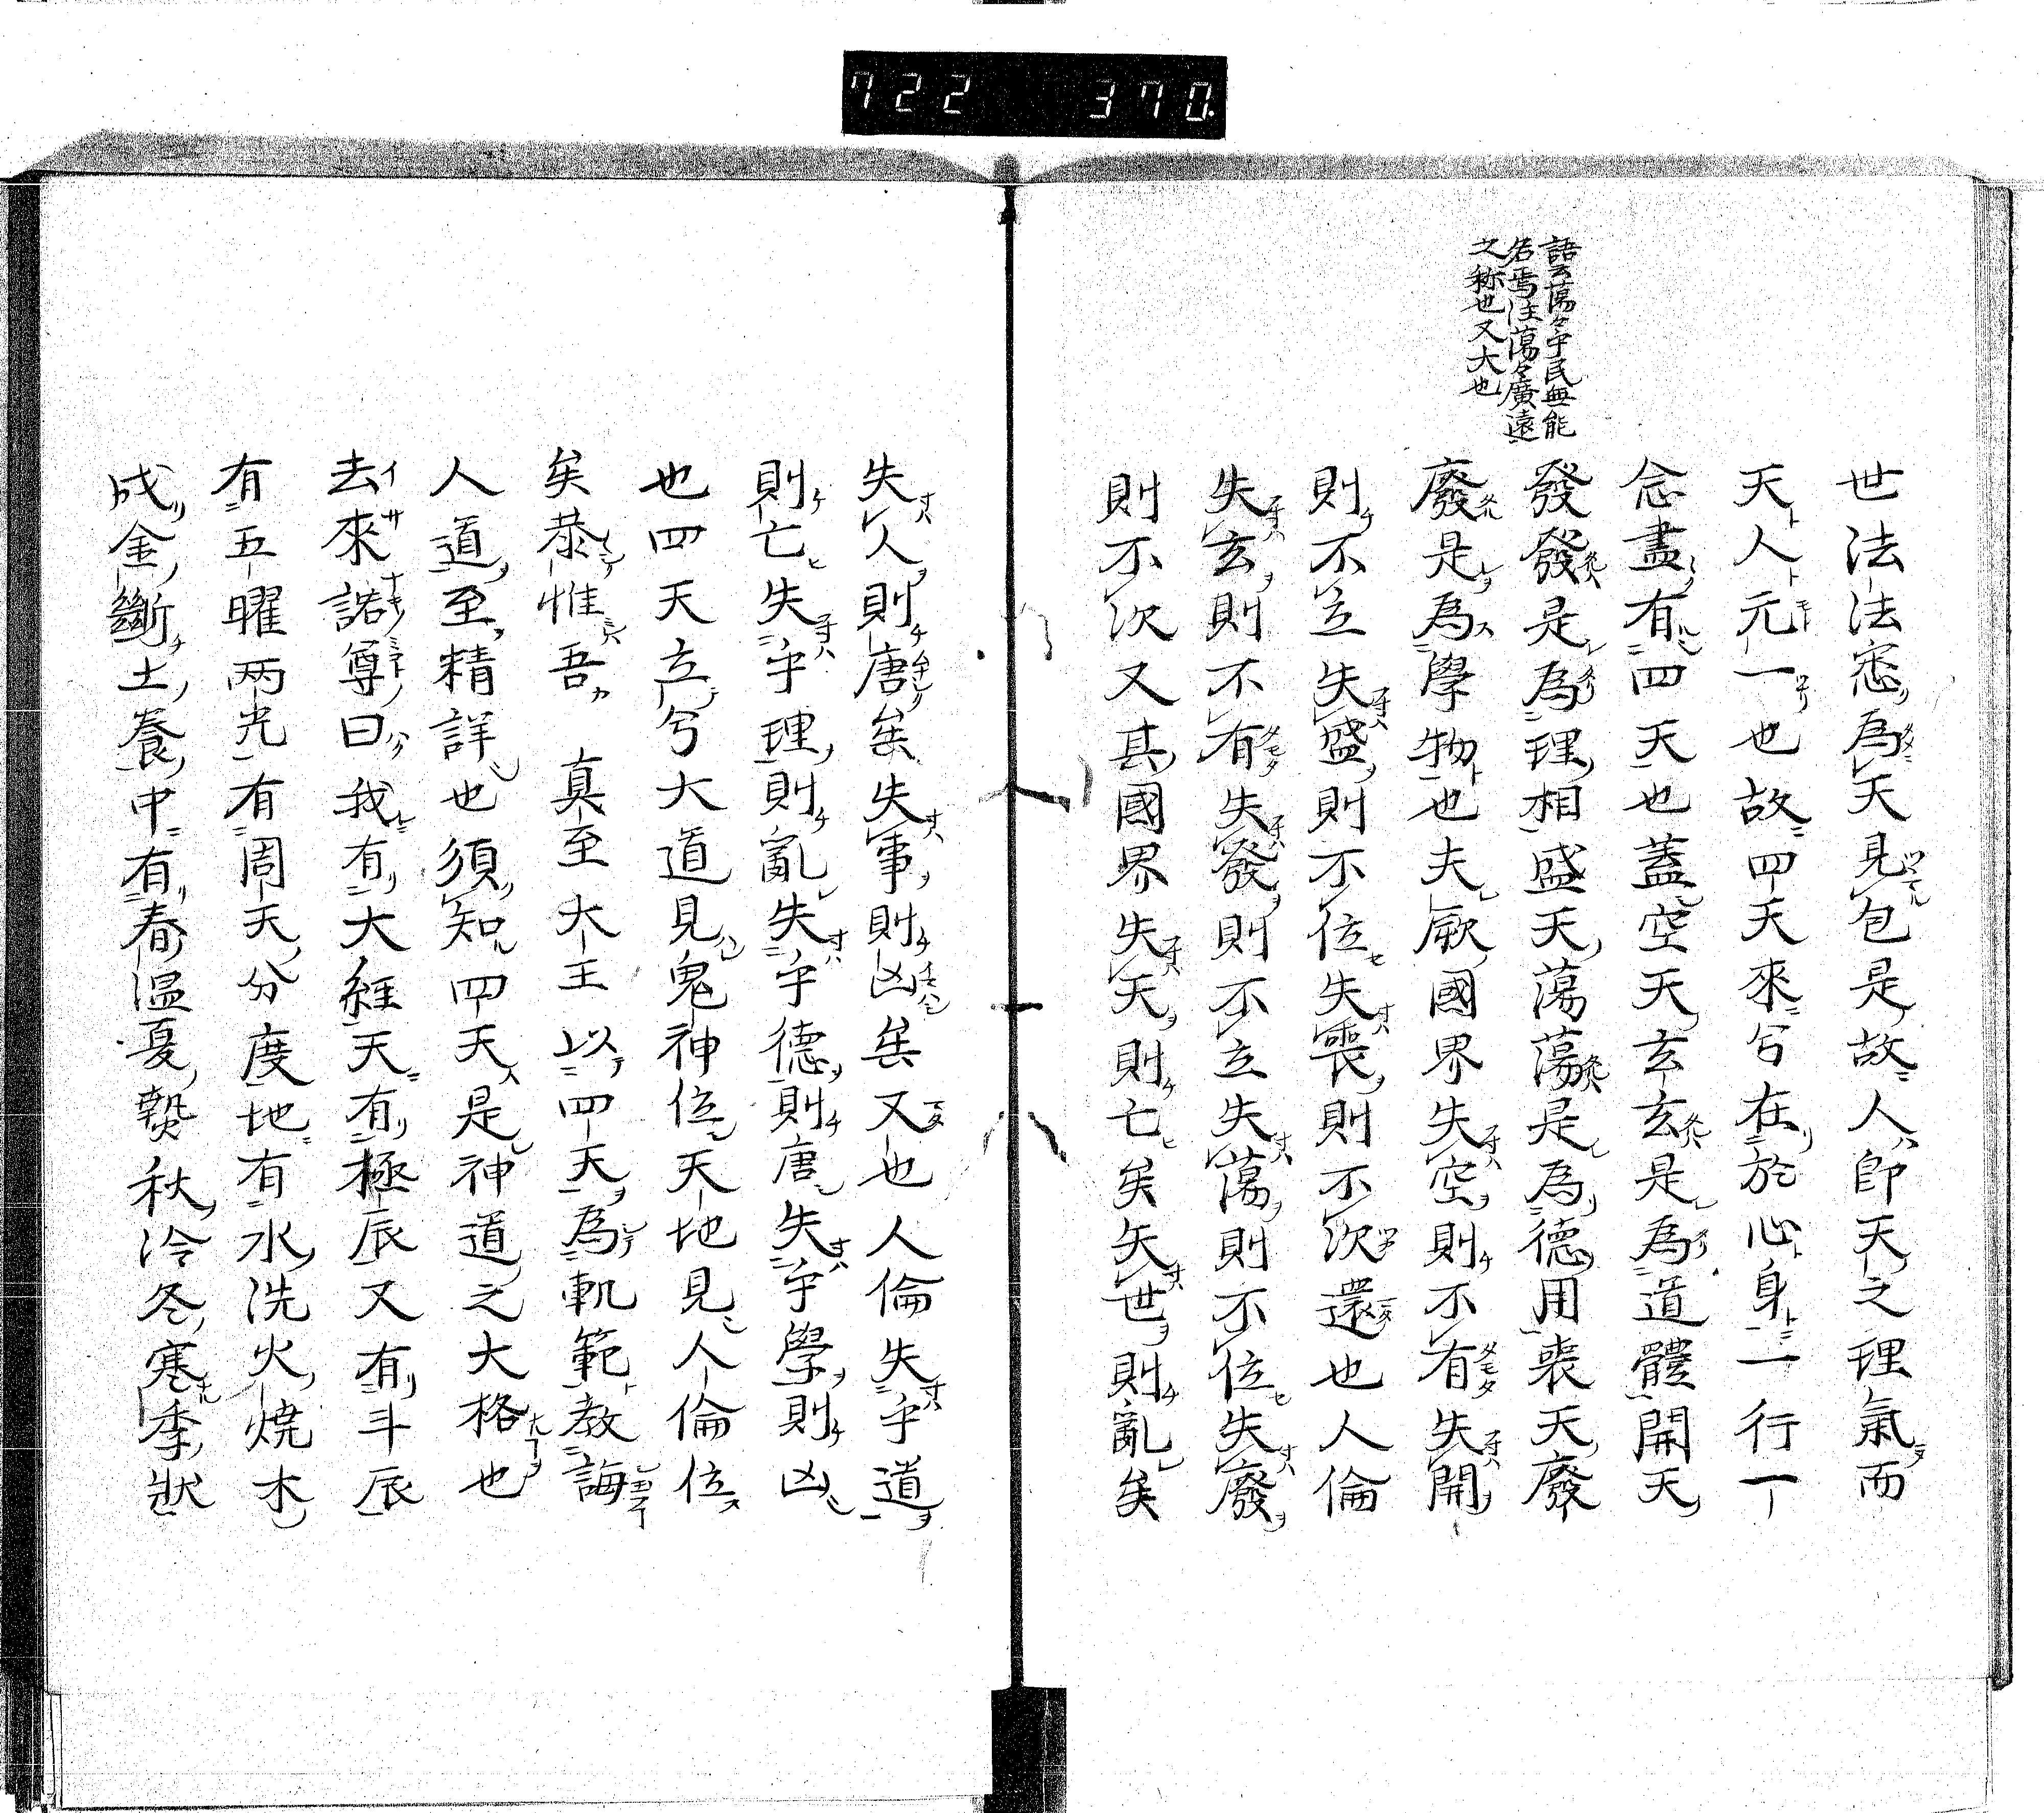 722 370.
語云蕩々乎民無能
名焉注蕩々廣遠
之称也又大也
世法法密為天見包是故人即天之理氣而
天人元一也故四天來兮在於心身一行一
念盡有四天也蓋空天玄玄是為道體開天
發發是為理相盛天蕩蕩是為德用喪天廢
廢是為學物也夫厥國界失空則不有失開
則不立失盛則不位失喪則不次還也人倫
失玄則不有失發則不立失蕩則不位失廢
則不次又其國界失天則亡矣失世則亂矣
失人則唐矣失事則凶矣又也人倫失乎道
則亡失乎理則亂失乎德則唐失乎學則凶
也四天立兮大道見鬼神位天地見人倫位
矣恭惟吾 真至大王以四天為軌範教誨
人道至精詳也須知四天是神道之大格也
去來諾尊曰我有大經天有極辰又有斗辰
有五曜两光有周天分度地有水洗火燒木
成金斷土養中有春温夏熱秋冷冬寒季狀